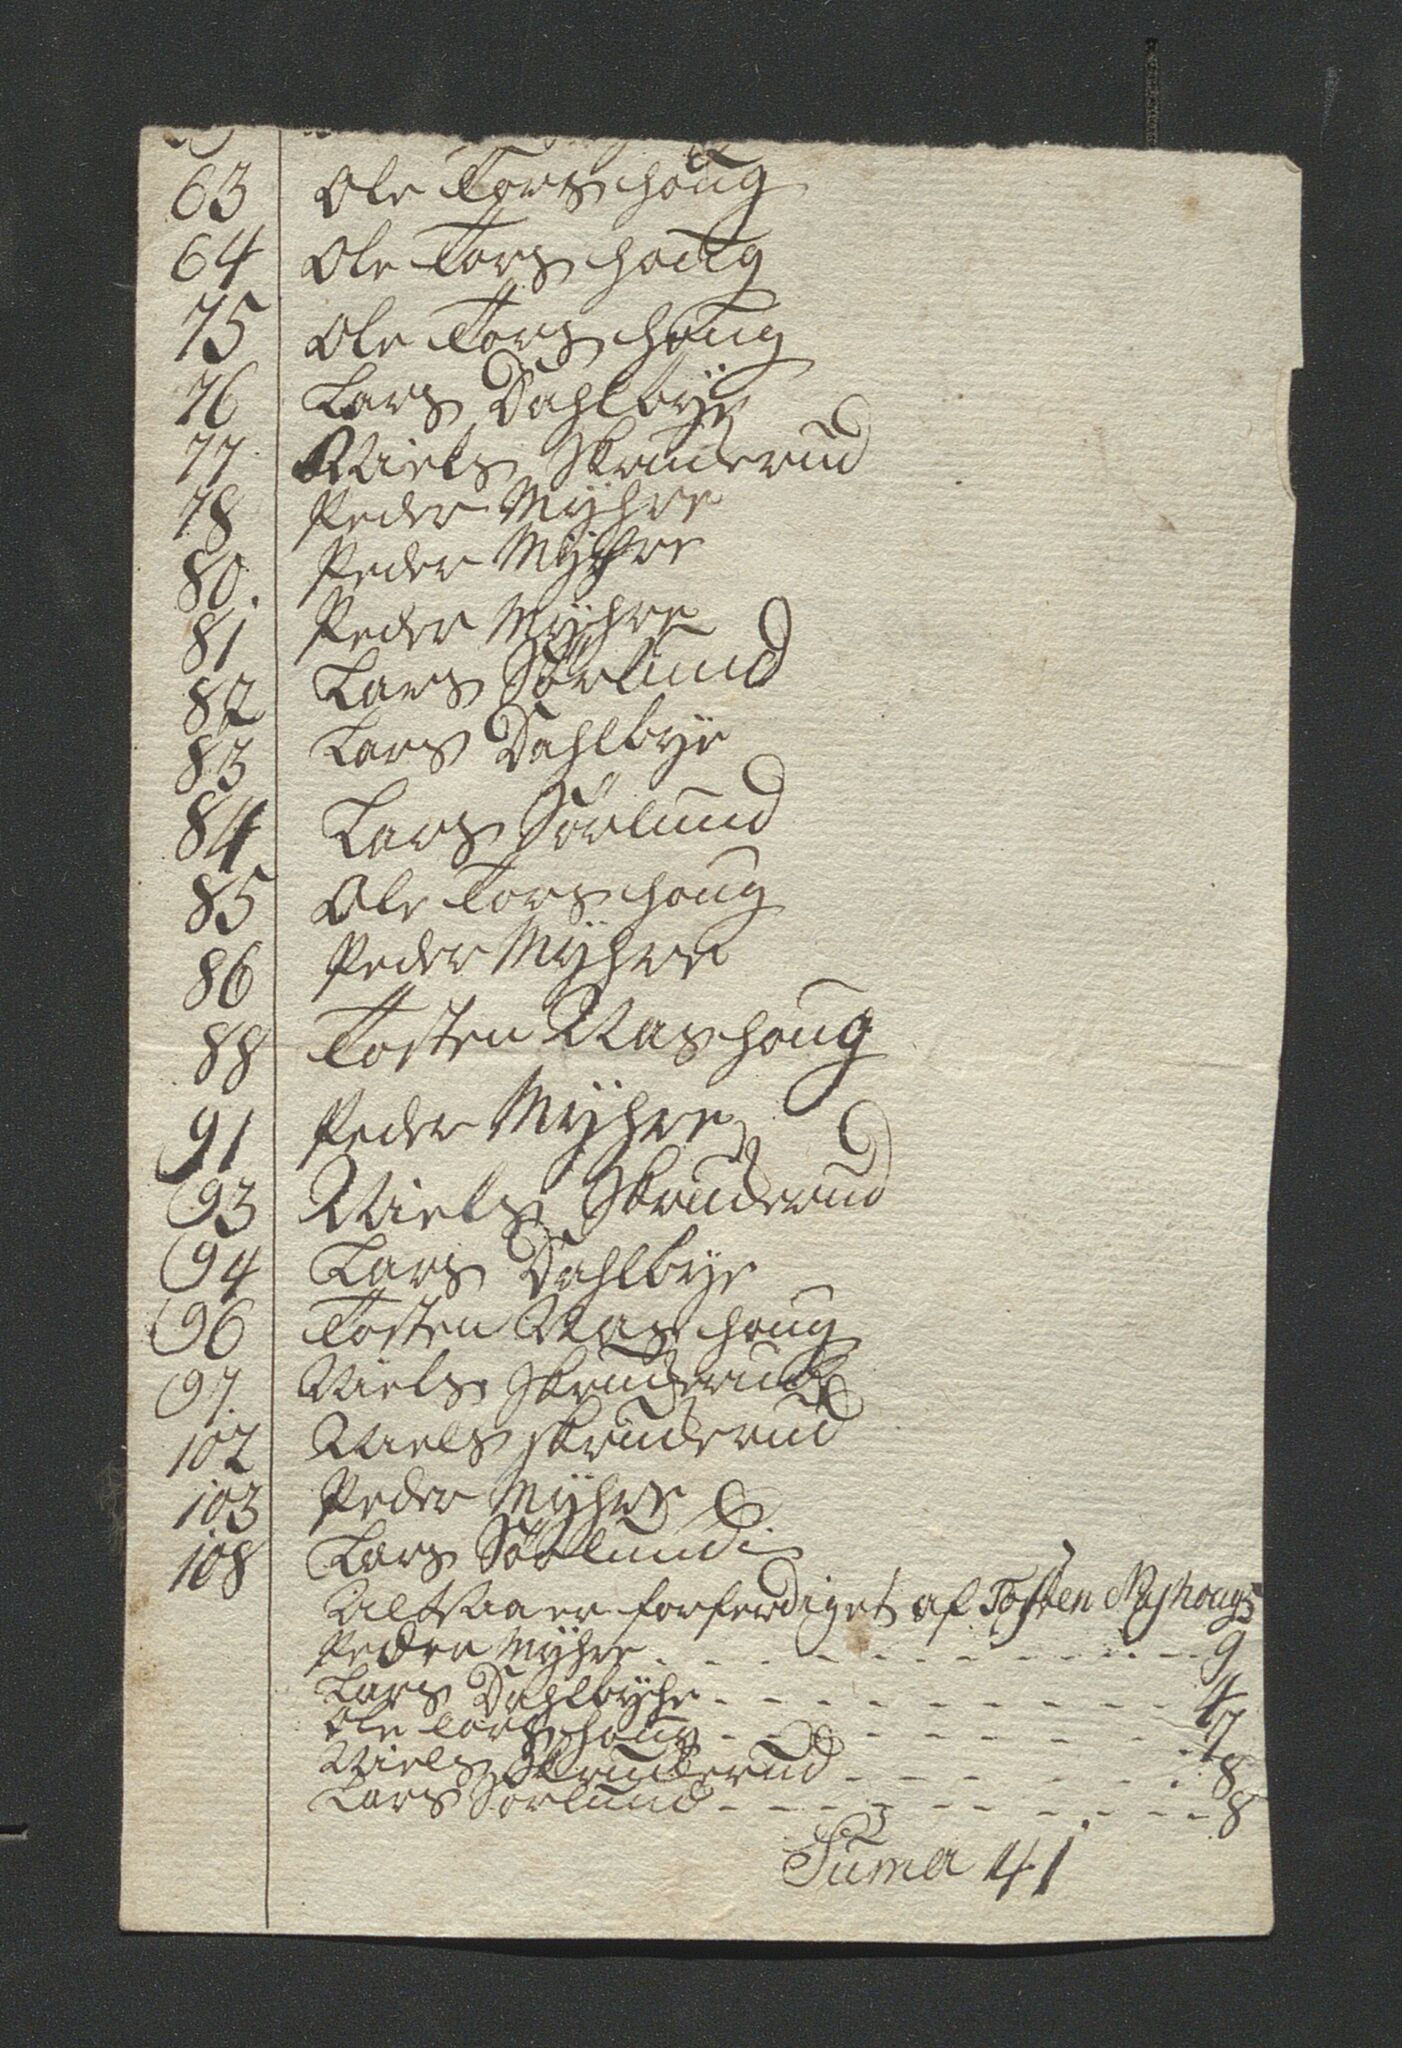 63 Ole Torshoug
64 Ole Torshoug
75 Ole Torshoug
76 Lars Dahlbÿe
77 Niels Skruderud
78 Peder Mÿhre
80. Peder Mÿhre
81 Peder Mÿhre
82 Lars Sörlund
83 Lars Dahlbÿe
84 Lars Sörlund
85 Ole Torshoug
86 Peder Mÿhre
88 Tosten Nashoug
91 Peder Mÿhre
93 Niels Skruderud
94 Lars Dahlbye
96 Tosten Nashoug
97. Niels Skruderud
102 Niels Skruderud
103 Peder Mÿhre
108 Lars Sörlund
forferdiget af Tosten Nashoug 5
Peder Mÿhre - - - - - - - - - - 9
Lars Dahlbÿhe - - - - - - - - - 4
Ole Torshoug - - - - - - - - - 7
Niels Skruderud - - - - - - - 8
Lars Sörlund - - - - - - - - - 8
Suma 41